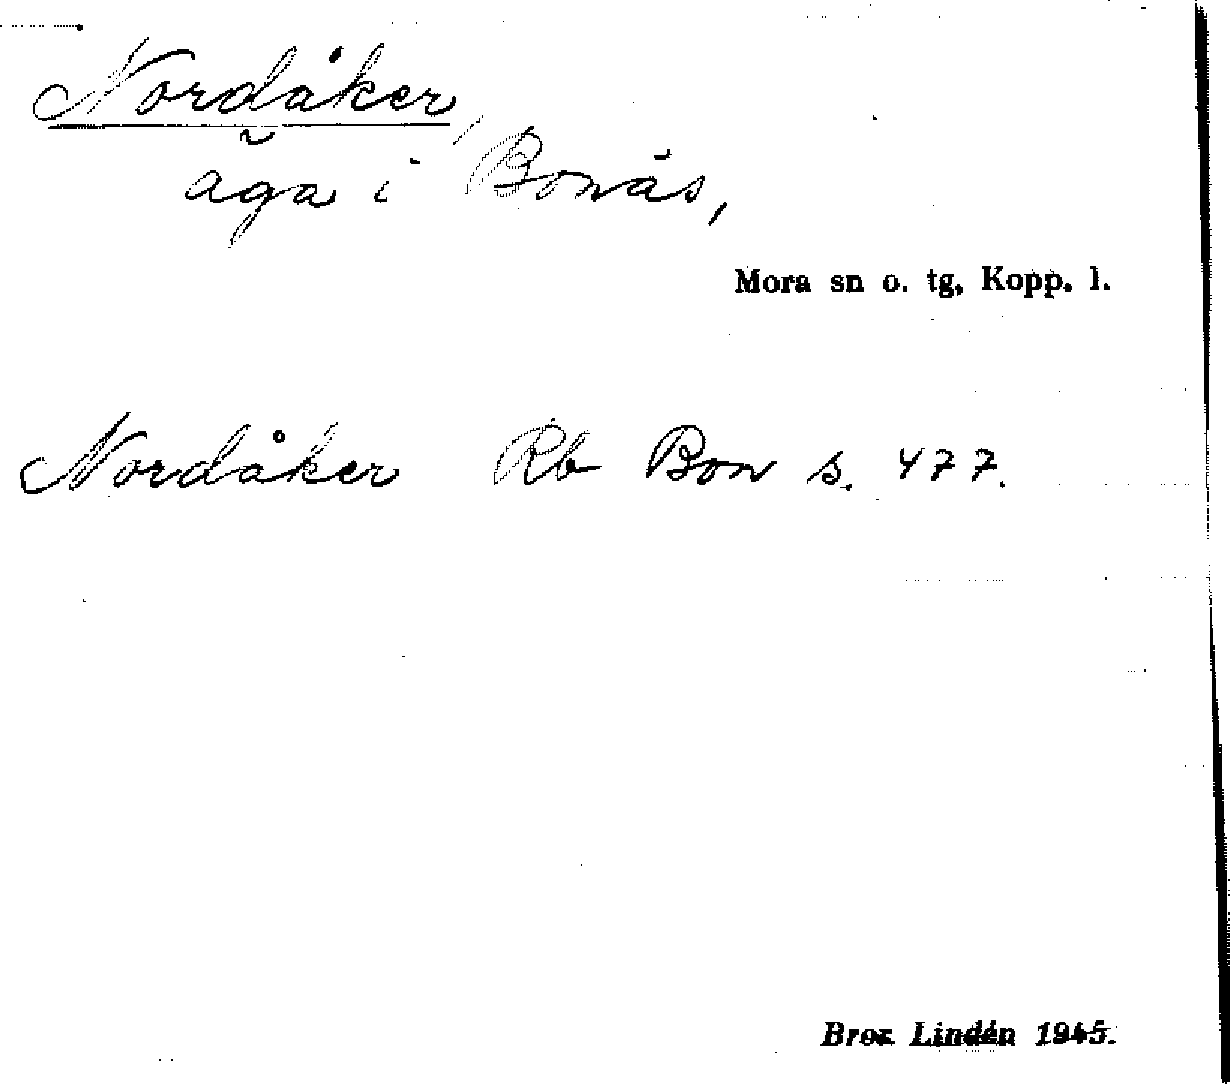 Nordåker,
äga i Bonäs,
Mora sn o. tg, Kopp. l.
Nordåker Rb Bon s. 477.
Bror Lindén 1945.